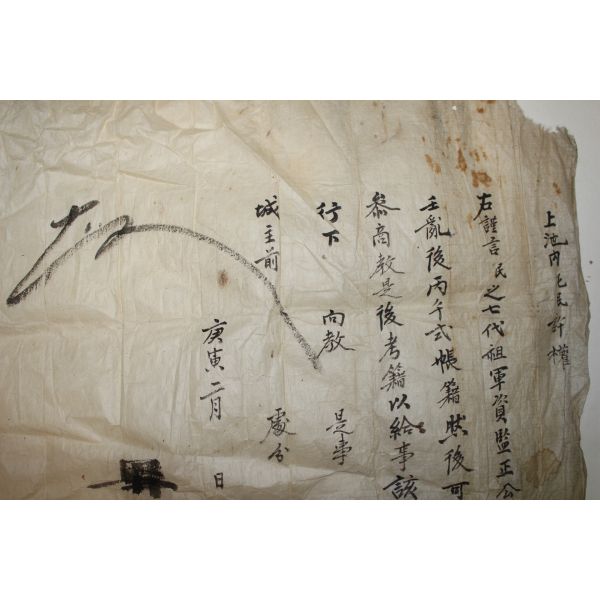 上池內化民許權
右謹言民之七代祖軍資監正公
壬亂後丙午式帳籍然後可
叅商敎是後考籍以給事該
行下向敎是事
城主前 處分
庚寅二月 日